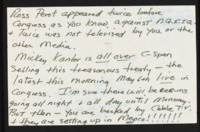 Ross Perot appeared twice before
Congress as you know, against NAFTA
+ twice was not televised by you or the
other Media.
Mickey Kantor is all over C-Span
selling this treasonous treaty - the
latest this morning May 6th live in
Congress. I'm sure there will be reruns
going all night + all day until Monday.
But then - you are backed by Cable T.V.
+ they are setting up in Mexico!!!!!!